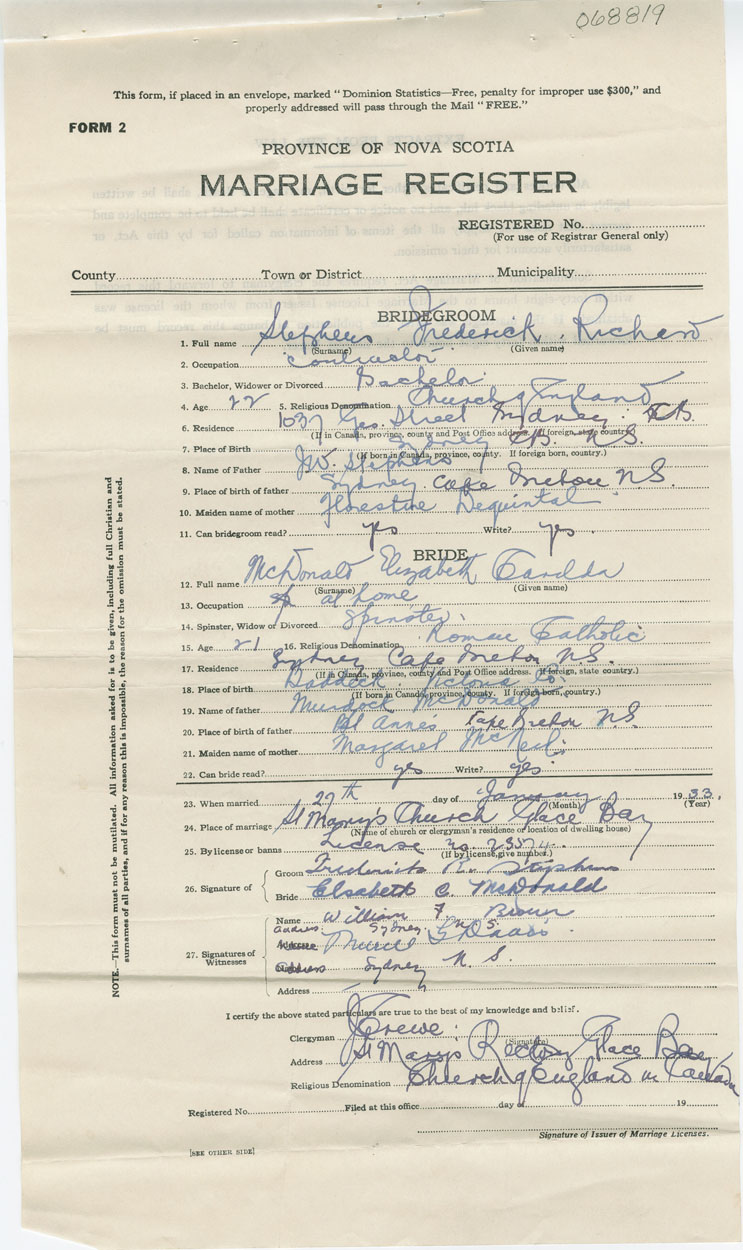 068819
This form, if placed in an envelope, marked "Dominion Statistics—Free, penalty for improper use $300," and
properly addressed will pass through the Mail "FREE."
FORM 2
PROVINCE OF NOVA SCOTIA
MARRIAGE REGISTER
REGISTERED No.
(For use of Registrar General only)
County Town or District Municipality
BRIDEGROOM
1. Full name Stephens Frederick Richard
(Surname) (Given name)
2. Occupation Contractor
3. Bachelor, Widower or Divorced Bachelor
4. Age 22 5. Religious Denomination Church of England
6. Residence 1037 Geo. Street Sydney C.B.
(If in Canada, province, county and Post Office address. If foreign, state country)
7. Place of Birth Sydney C.B. N.S.
(If born in Canada, province, county. If foreign born, country.)
8. Name of Father J.W. Stephens
9. Place of birth of father Sydney Cape Breton N.S.
10. Maiden name of mother Florestine Dequintal
11. Can bridegroom read? yes Write? yes
BRIDE
12. Full name McDonald Elizabeth Carilda
(Surname) (Given name)
13. Occupation at home
14. Spinster, Widow or Divorced Spinster
15. Age 21 16. Religious Denomination Roman Catholic
17. Residence Sydney Cape Breton N.S.
(If in Canada, province, county and Post Office address. If foreign, state country.)
18. Place of birth Baddeck Victoria Co.
(If born in Canada, province, county. If foreign born, country.)
19. Name of father Murdock McDonald
20. Place of birth of father St Anne's Cape Breton N S
21. Maiden name of mother Margaret McNeil
22. Can bride read? yes Write? yes
23. When married 27th day of January 1933
(Month) (Year)
24. Place of marriage St Mary's Church Glace Bay
(Name of church or clergyman's residence or location of dwelling house)
25. By license or banns License no. 23574
(If by license, give number.)
26. Signature of Groom Frederick R. Stephens
Bride Elsabeth C. McDonald
27. Signatures of Witnesses
Name William F. Brown
Address Sydney N S.
Davis
Sydney N S.
Address
I certify the above stated particulars are true to the best of my knowledge and belief.
Clergyman J Crewe
(Signature)
Address St Marys Rectory Glace Bay
Religious Denomination Church of England in Canada
Registered No. Filed at this office day of 19
Signature of Issuer of Marriage Licenses.
[SEE OTHER SIDE]
NOTE.—This form must not be mutilated. All information asked for is to be given, including full Christian and
surnames of all parties, and if for any reason this is impossible, the reason for the omission must be stated.